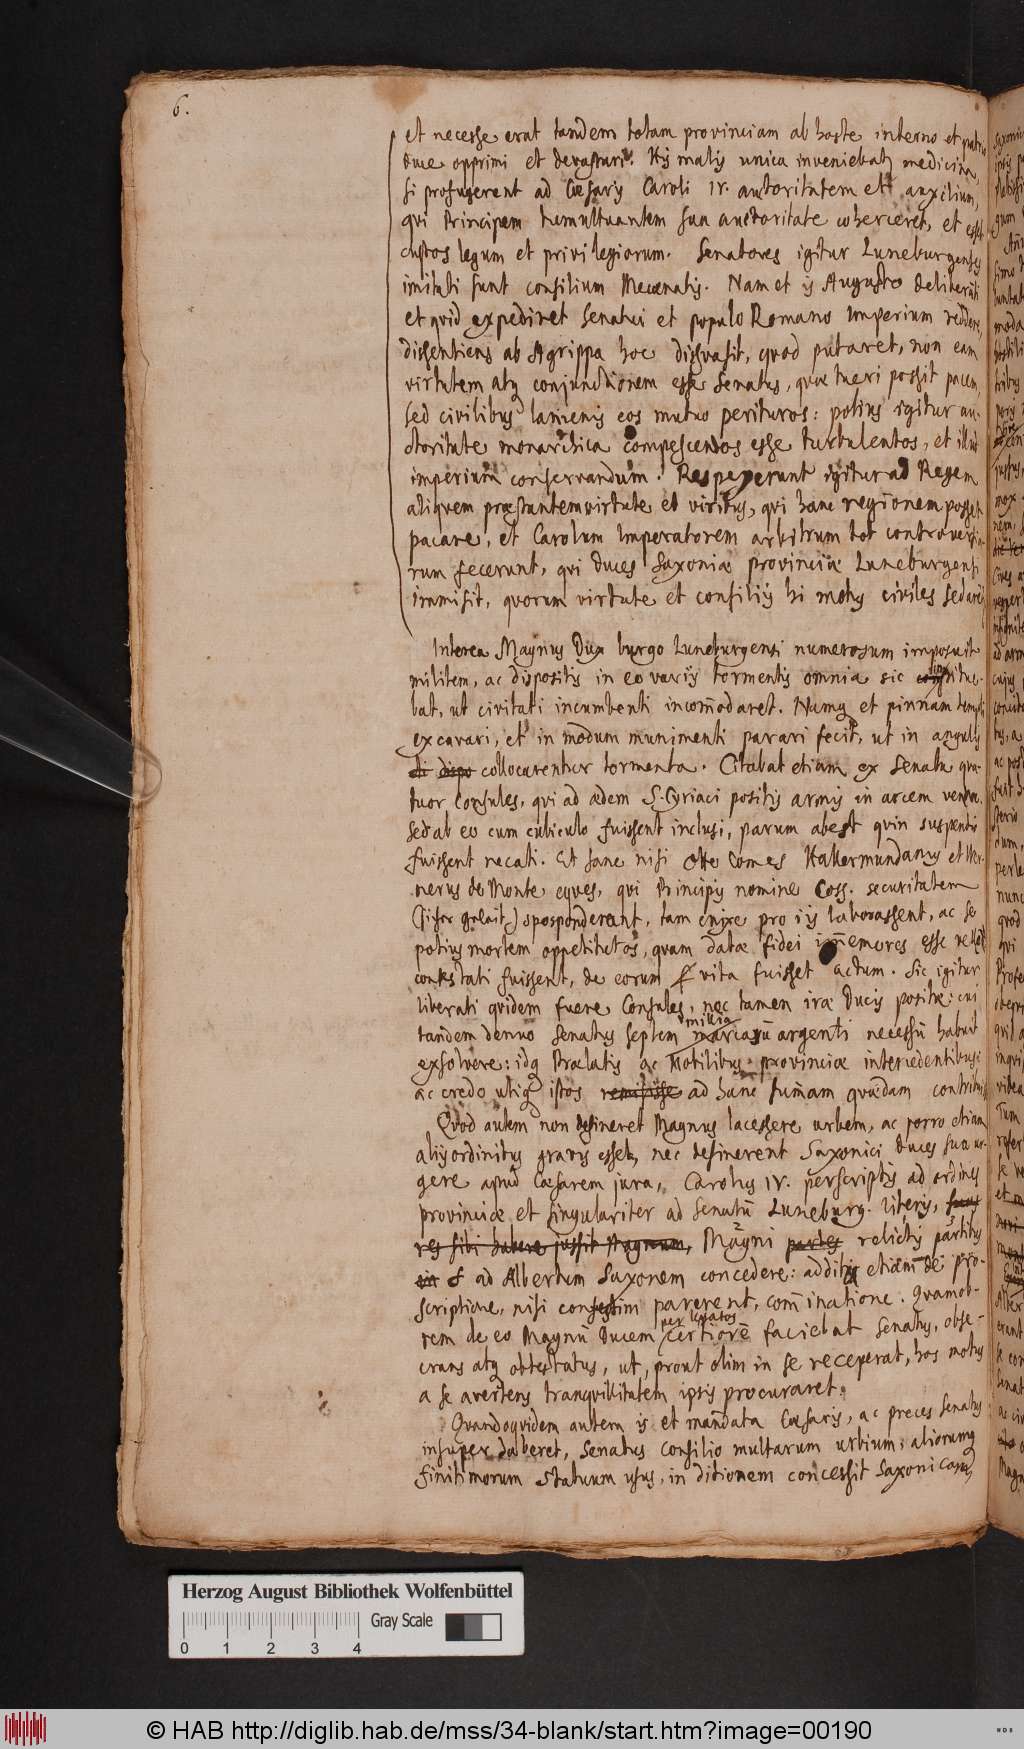 6.
et necesse erat tandem totam provinciam ab hoste interno et
duce opprimi et devastari. His malis unica inveniebatq medicina,
si profugerent ad Cæsaris Caroli IV. autoritatem et auxilium,
qvi Principem tumultuantem sua auctoritate coherceret, et esset
custos legum et privilegiorum. Senatores igitur Luneburgenses
imitati sunt consilium Mecænatis. Nam et is Augusto deliberāti
et qvid expediret Senatui et populo Romano Imperium reddere,
dissentiens ab Agrippa hoc dissvasit, qvod putaret, non eam
virtutem atq conjunctionem esse Senatus, quæ tueri possit pacem,
sed civilibus lanienis eos mutuo perituros: potius igitur au-
ctoritate monarchica compescendos esse turbulentos, et illud
imperium conservandum. Respexerunt igitur ad Regem
aliqvem præstantem virtute et viribus, qvi hanc regionem posset
pacare, et Carolum Imperatorem arbitrum tot controversia-
rum fecerunt, qvi duces Saxoniæ provinciæ Luneburgensi
immisit, qvorum virtute et consiliis hi motus civiles sedarētr
Interea Magnus Dux burgo Luneburgensi numerosum imposuit
militem, ac dispositis in eo variis tormentis omnia sic institue-
bat, ut civitati incumbenti incom̄odaret. Namq et pinnam templi
excavari, et in modum munimenti parari fecit, ut in angulis
di dispo collocarentur tormenta. Citabat etiam ex Senatu qva-
tuor Consules, qvi ad ædem S. Cyriaci positis armis in arcem venere.
Sed ab eo cum cubiculo fuissent inclusi, parum abest qvin suspensi
fuissent necati. Et sane nisi Otte Comes Hallermundanus et Wer-
nerus de Monte eqves, qvi Principis nomine Coss. securitatem
(sicher geleit) sposponderant, tam enixe pro iis laborassent, ac se
potius mortem oppetituros, qvam datæ fidei im̄emores esse velle
contestati fuissent, de eorum vita fuisset actum. Sic igitur
liberati qvidem fuere Consules, nec tamen iræ Ducis positæ: cui
tandem denuo Senatus septem millia marcarū argenti necessū habuit
exsolvere: idq Prælatis ac Nobilibus provinciæ intercedentibus:
ac credo utiqe istos remisisse ad hanc sum̄am qvædam contribuisse
Qvod autem non desineret Magnus lacessere urbem, ac porro etiam
aliis ordinibus gravis esset, nec desinerent Saxonici Duces sua ur-
gere apud Cæsarem jura, Carolus IV. perscriptis ad ordines
provinciæ et singulariter ad Senatū Luneburg. literis,
res sibi habere jussit Magnum, Magni partes relictis partibus
ad Albertum Saxonem concedere: additis etiam de pro-
scriptione, nisi confestim parerent, com̄inatione. Qvamob-
rem de eo Magnū Ducem per legatos certiorē faciebat Senatus, obse-
crans atq obtestatus, ut, prout olim in se receperat, hos motus
a se avertens tranqvillitatem ipsis procuraret.
Qvandoqvidem autem is et mandata Cæsaris, ac preces Senatus
insuper haberet, Senatus consilio multarum urbium, aliorumq
finitimorum statuum usus, in ditionem concessit Saxonicam,
Herzog August Bibliothek Wolfenbüttel
Gray Scale
0 1 2 3 4
© HAB http://diglib.hab.de/mss/34-blank/start.htm?image=00190